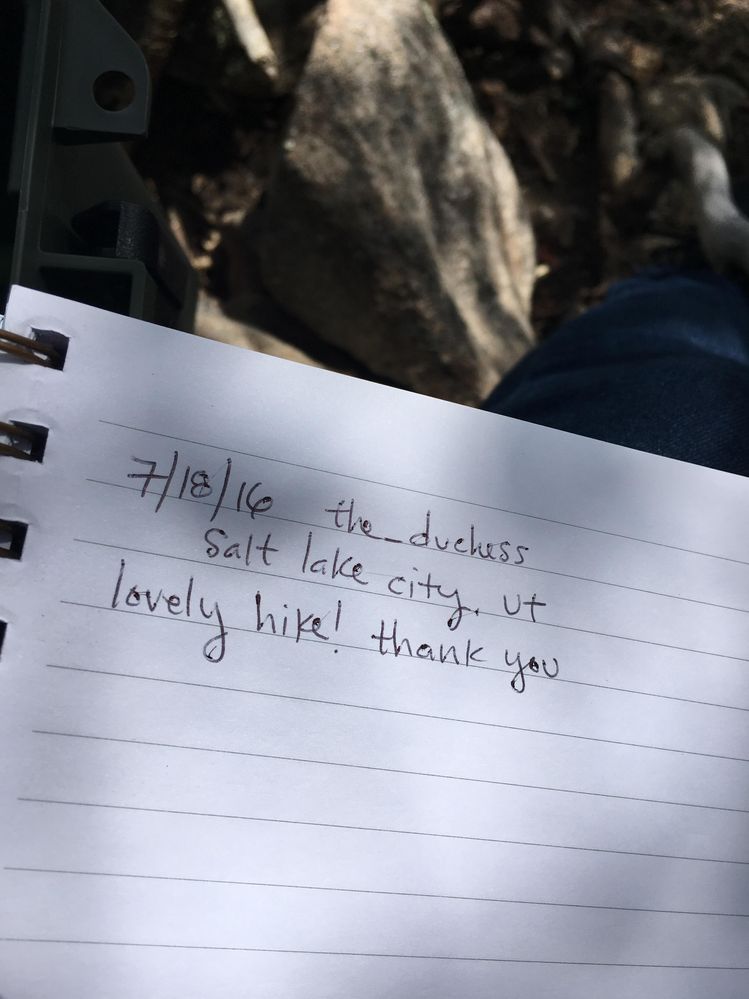 7/18/16 the_duchess
Salt lake city, ut
lovely hike! thank you